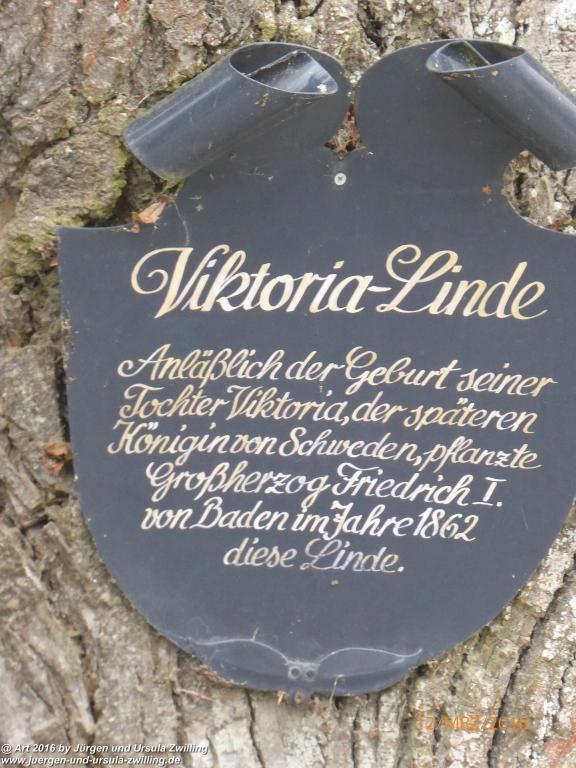 Viktoria-Linde
Anläßlich der Geburt seiner
Tochter Viktoria, der späteren
Königin von Schweden, pflanzte
Großherzog Friedrich I.
von Baden im Jahre 1862
diese Linde.
12 MRZ 2016
@ Art 2016 by Jürgen und Ursula Zwilling
www.juergen-und-ursula-zwilling.de